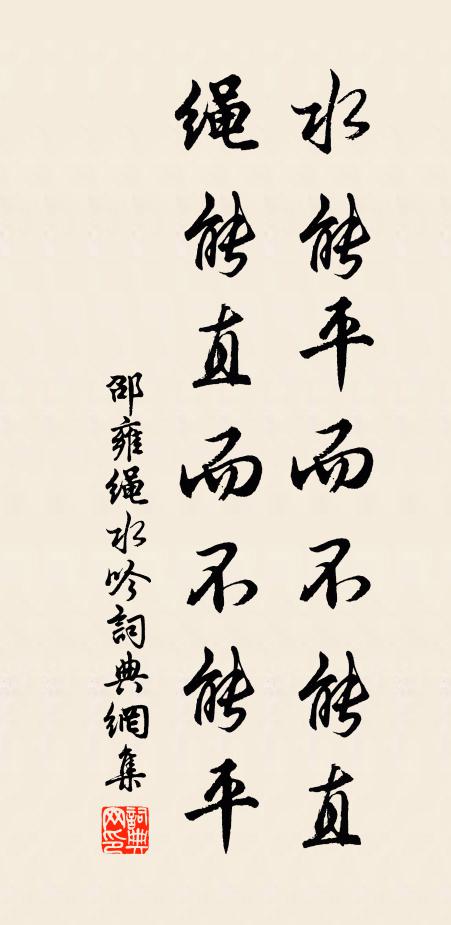 水能平而不能直
绳能直而不能平
邵雍绳水吟詞典網集
詞典网印